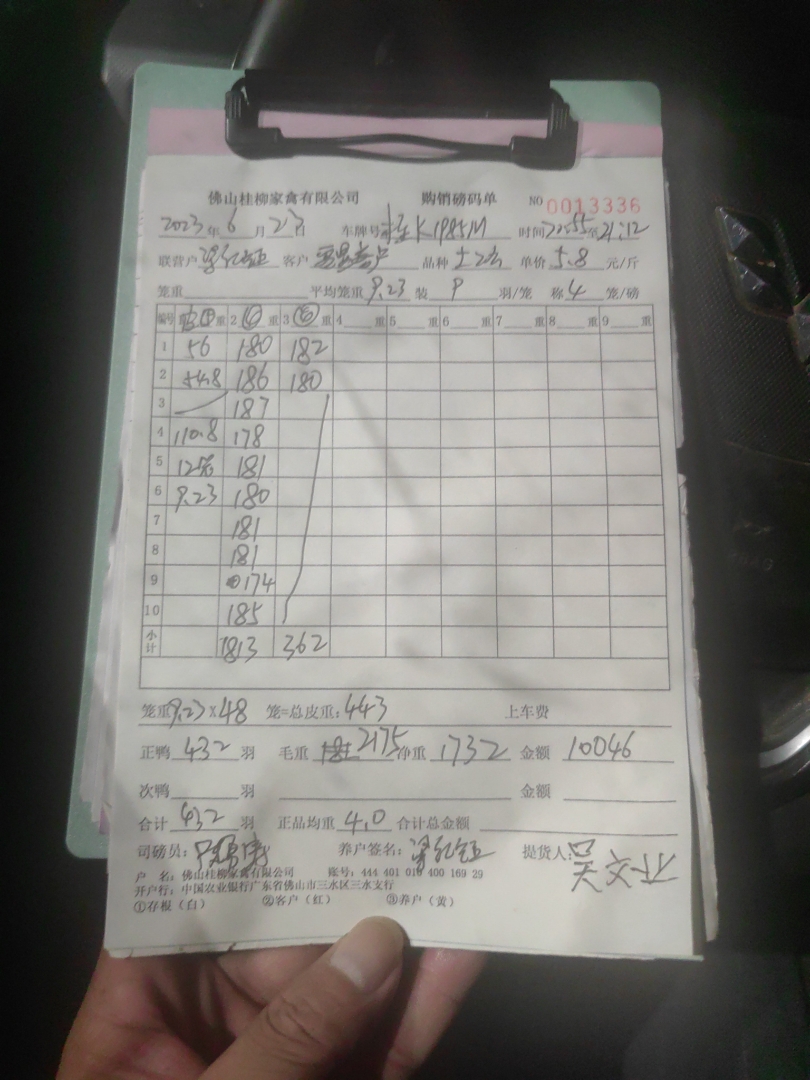 佛山桂柳家禽有限公司 购销磅码单 NO 0013336
2023年6月23日 车牌号桂K1985M 时间 至21:12
联营户 客户 品种 单价5.8元/斤
笼重 平均笼重9.23 装9羽/笼 称4笼/磅
编号 重 2 重 3 重 4 重 5 重 6 重 7 重 8 重 9 重
1 56 180 182
2 54.8 186 180
3 187
4 110.8 178
5 12 181
6 9.23 180
7 181
8 181
9 174
10 185
小计 1813 362
笼重9.23×48 笼=总皮重:443 上车费
正鸭432羽 毛重 2175 净重1732 金额10046
次鸭 羽 金额
合计432羽 正品均重4.0 合计总金额
司磅员: 养户签名: 提货人:吴文业
户 名:佛山桂柳家禽有限公司 账号:444 401 010 400 169 29
开户行:中国农业银行广东省佛山市三水区三水支行
①存根(白) ②客户(红) ③养户(黄)